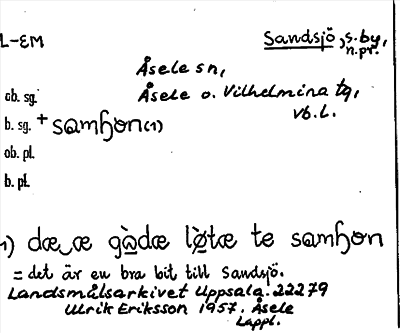 L-EM Sandsjö, s. by,
n.pr.
Åsele sn,
ob. sg. Åsele o. Vilhelmina tg,
Vb.l.
b. sg. + samɧon (1)
ob. pl.
b. pl.
1) dæ‿æ gòdæ lø̀tæ te samɧon
= det är en bra bit till Sandsjö.
Landsmålsarkivet Uppsala. 22279
Ulrik Eriksson 1957. Åsele
Lappl.